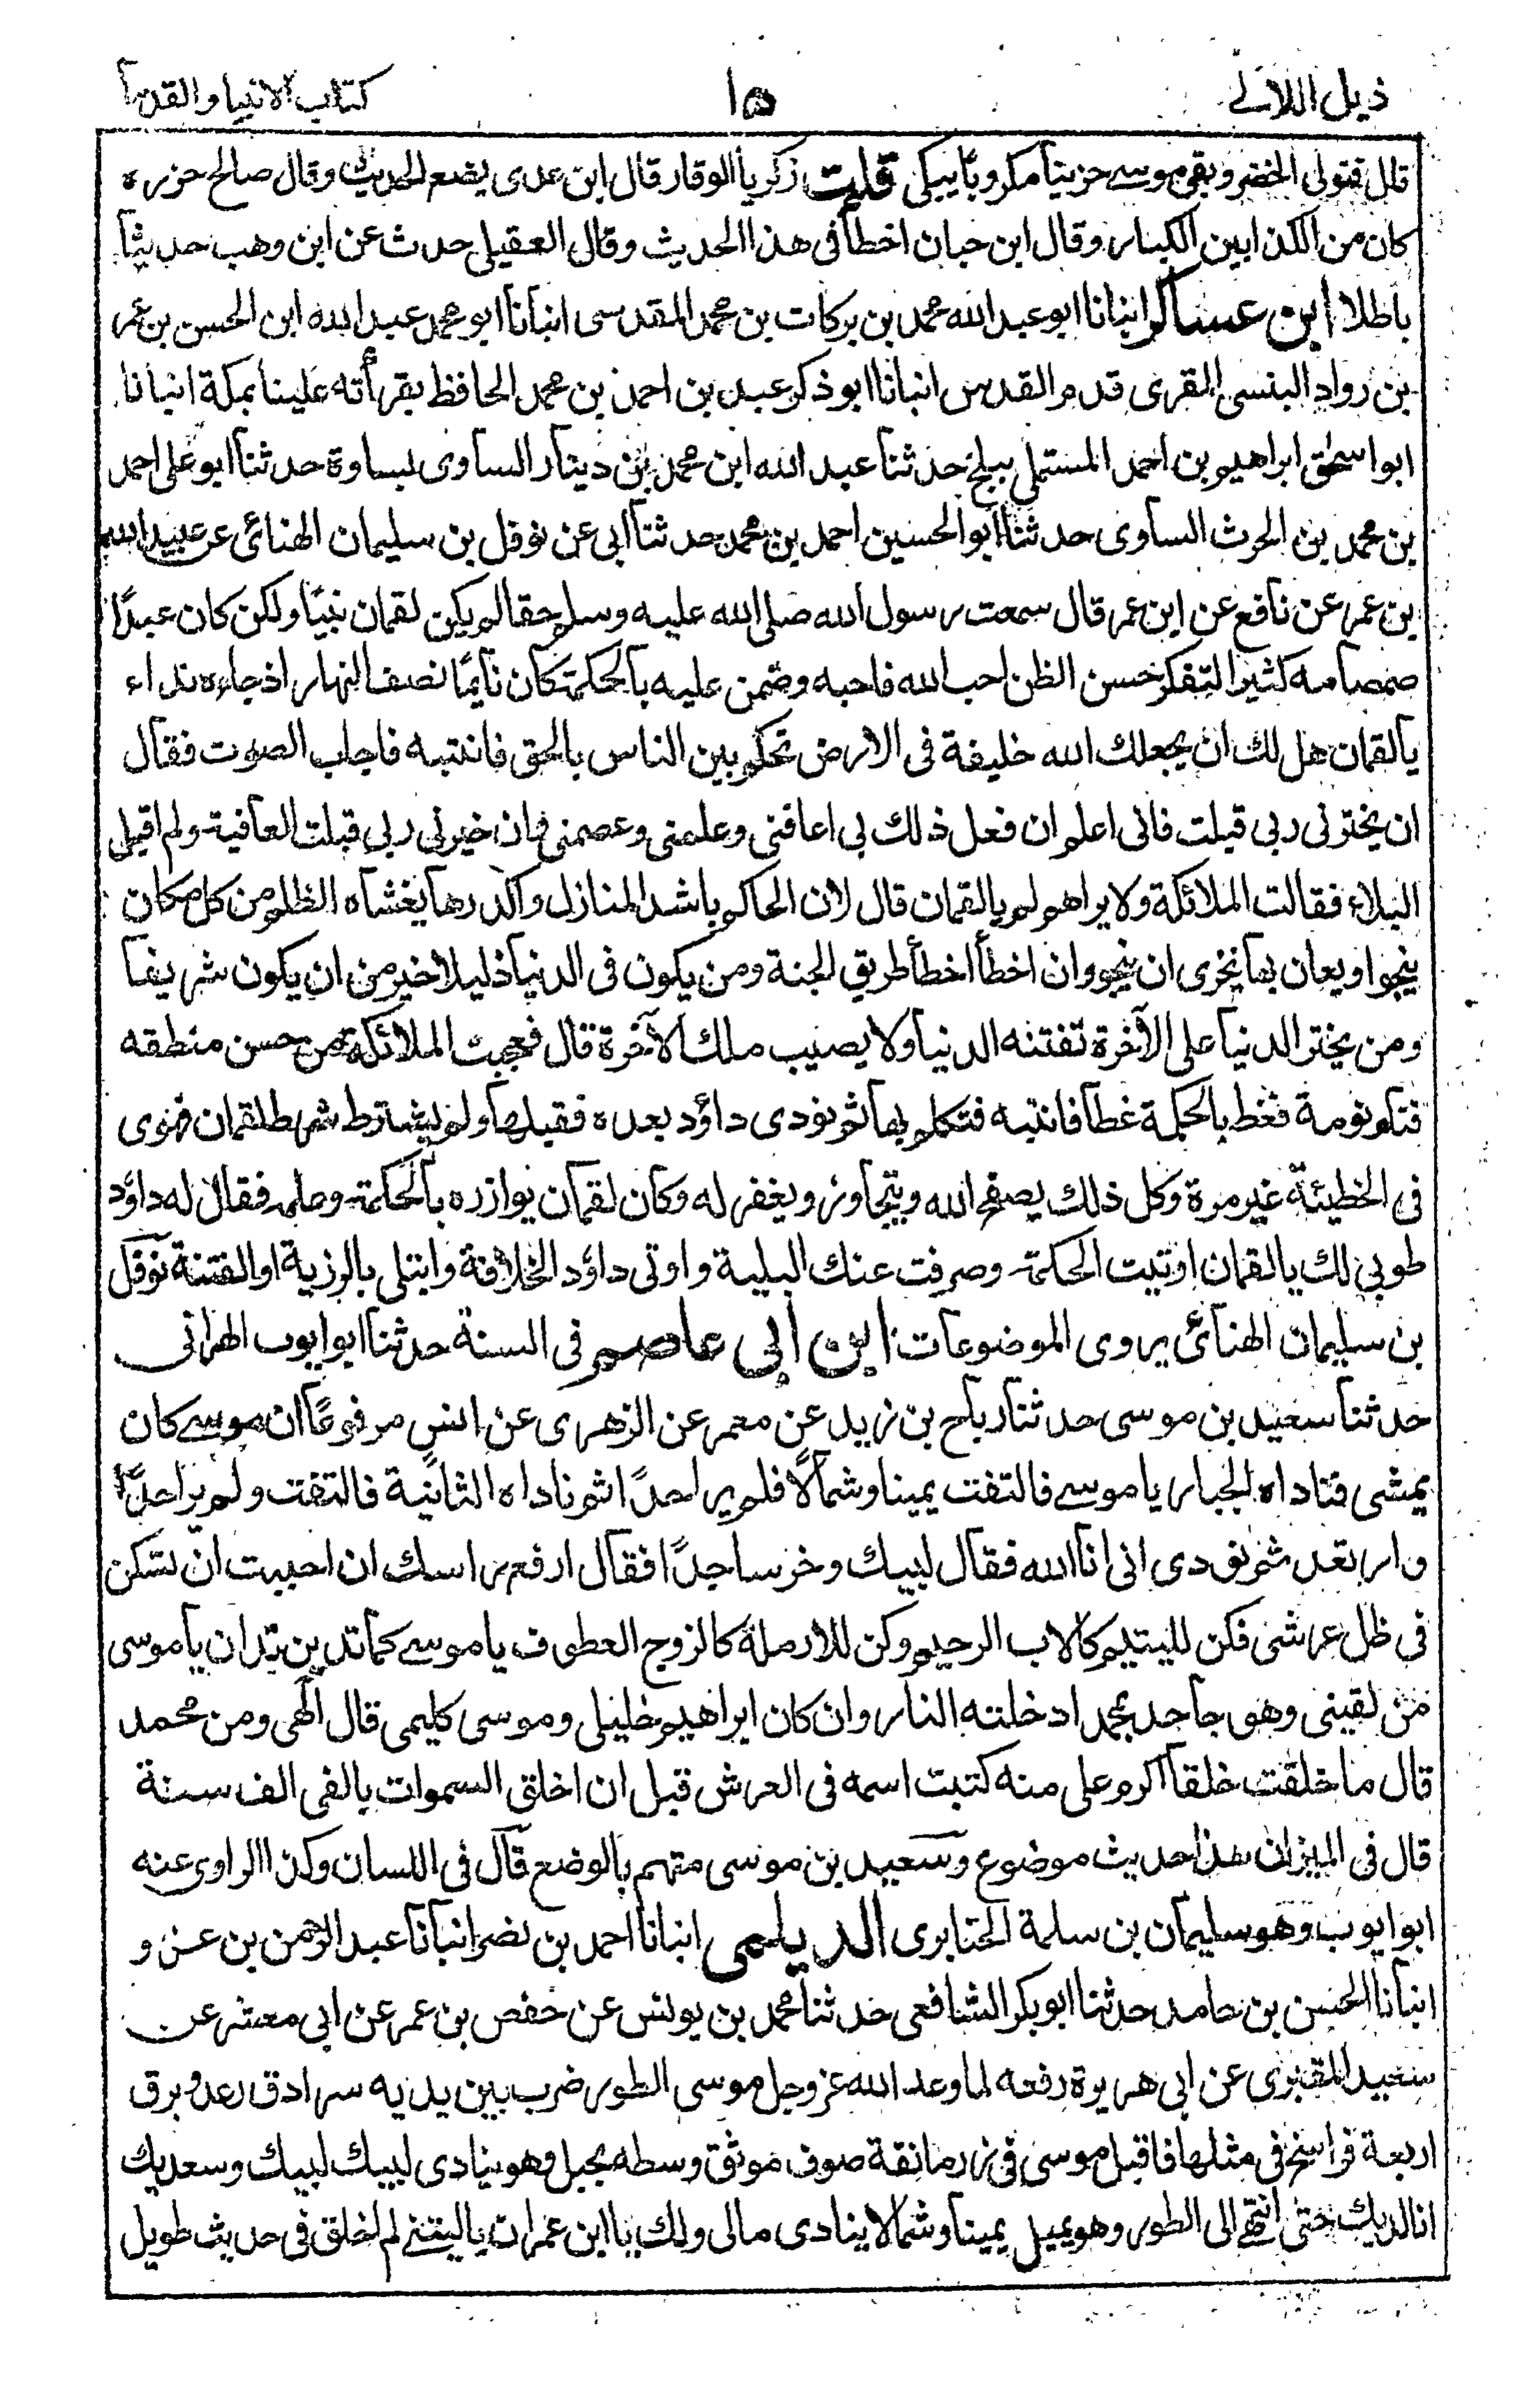 ذيل اللآلے
١٥
كتاب الانبيا والقدما
قال فتولى الخضر وبقى موسے حزينا مكروبا يبكى قلت زكريا الوقار قال ابن عدى يضع الحديث وقال صالح جزره
كان من الكذابين الكبار وقال ابن حبان اخطأ فى هذا الحديث وقال العقيلى حدث عن ابن وهب حديثا
باطلا ابن عساكر انبانا ابو عبد الله محمد بن بركات بن محمد المقدسى انبانا ابو محمد عبد الله ابن الحسن بن عمر
بن رواد البنسى المقرى قدم القدس انبانا ابو ذكر عبد بن احمد بن محمد الحافظ بقرأته علينا بمكة انبانا
ابو اسحق ابراهيم بن احمد المستملى ببلخ حدثنا عبد الله ابن محمد بن دينار الساوى بساوة حدثنا ابو على احمد
بن محمد بن الحرث الساوى حدثنا ابو الحسين احمد بن محمد حدثنا ابى عن نوفل بن سليمان الهنائى عن عبيد الله
بن عمر عن نافع عن ابن عمر قال سمعت رسول الله صلى الله عليه وسلم حقا لم يكن لقمان نبيًا ولكن كان عبدًا
صمصامه كثير التفكر حسن الظن احب الله فاحبه وضمن عليه بالحكمة كان نائما نصف النهار اذ جاءه نداء
يا لقمان هل لك ان يجعلك الله خليفة فى الارض تحكم بين الناس بالحق فانتبه فاجاب الصوت فقال
ان يخترنى ربى قبلت فانى اعلم ان فعل ذلك بى اعافنى وعلمنى وعصمنى فان خيرنى ربى قبلت العافية ولم اقبل
البلاء فقالت الملائكة ولا يراهم لم يا لقمان قال لان الحاكم باشد المنازل واكدرها يغشاه الظلم من كل مكان
ينجوا ويعان بها نخرى ان ينجو وان اخطأ اخطأ طريق الجنة ومن يكون فى الدنيا ذليلا خير من ان يكون شريفا
ومن يختر الدنيا على الآخرة تفتنه الدنيا ولا يصيب ملك الآخرة قال فعجبت الملائكة من حسن منطقه
فتكو نومة فغط بالحكمة غطا فانتبه فتكلم بها ثم نودى داؤد بعده فقبلها ولم يشترط شرط لقمان فهوى
فى الخطيئة غير مرة وكل ذلك يصفح الله ويتجاوز ويغفر له وكان لقمان يوازره بالحكمة وعلمه فقال له داؤد
طوبى لك يا لقمان اوتيت الحكمة وصرفت عنك البلية واوتى داؤد الخلافة وابتلى بالرزية او الفتنة نوفل
بن سليمان الهنائى يروى الموضوعات ابن ابى عاصم فى السنة حدثنا ابو ايوب الهرانى
حدثنا سعيد بن موسى حدثنا رباح بن زيد عن معمر عن الزهرى عن انس مرفوعًا ان موسے كان
يمشى فناداه الجبار يا موسے فالتفت يمينا وشمالًا فلم ير احدًا ثم ناداه الثانية فالتفت ولم ير احدًا
وارتعد ثم نودى انى انا الله فقال لبيك وخر ساجدًا فقال ارفع راسك ان احببت ان تسكن
فى ظل عرشى فكن لليتيم كالاب الرحيم وكن للارملة كالزوج العطوف يا موسے كما تدين تدان يا موسى
من لقينى وهو جاحد بمحمد ادخلته النار وان كان ابراهيم خليلى وموسى كليمى قال الٰهى ومن محمد
قال ما خلقت خلقا اكرم على منه كتبت اسمه فى العرش قبل ان اخلق السموات بالفى الف سنة
قال فى الميزان هذا حديث موضوع وسعيد بن موسى متهم بالوضع قال فى اللسان وكذا الراوى عنه
ابو ايوب وهو سليمان بن سلمة الخبابرى الديلمى انبانا احمد بن نصر انبانا عبد الرحمن بن غزو
انبانا الحسن بن حامد حدثنا ابو بكر الشافعى حدثنا محمد بن يونس عن حفص بن عمر عن ابى معشر عن
سعيد المقبرى عن ابى هريرة رفعه لما وعد الله عز وجل موسى الطور ضرب بين يديه سرادق رعد وبرق
اربعة فراسخ فى مثلها فاقبل موسى فى زرمانقة صوف موثق وسطه بحبل وهو ينادى لبيك لبيك وسعديك
انا لديك حتى انتهى الى الطور وهو يميل يمينا وشمالا ينادى مالى ولك يا ابن عمران يا ليتنے لم اخلق فى حديث طويل